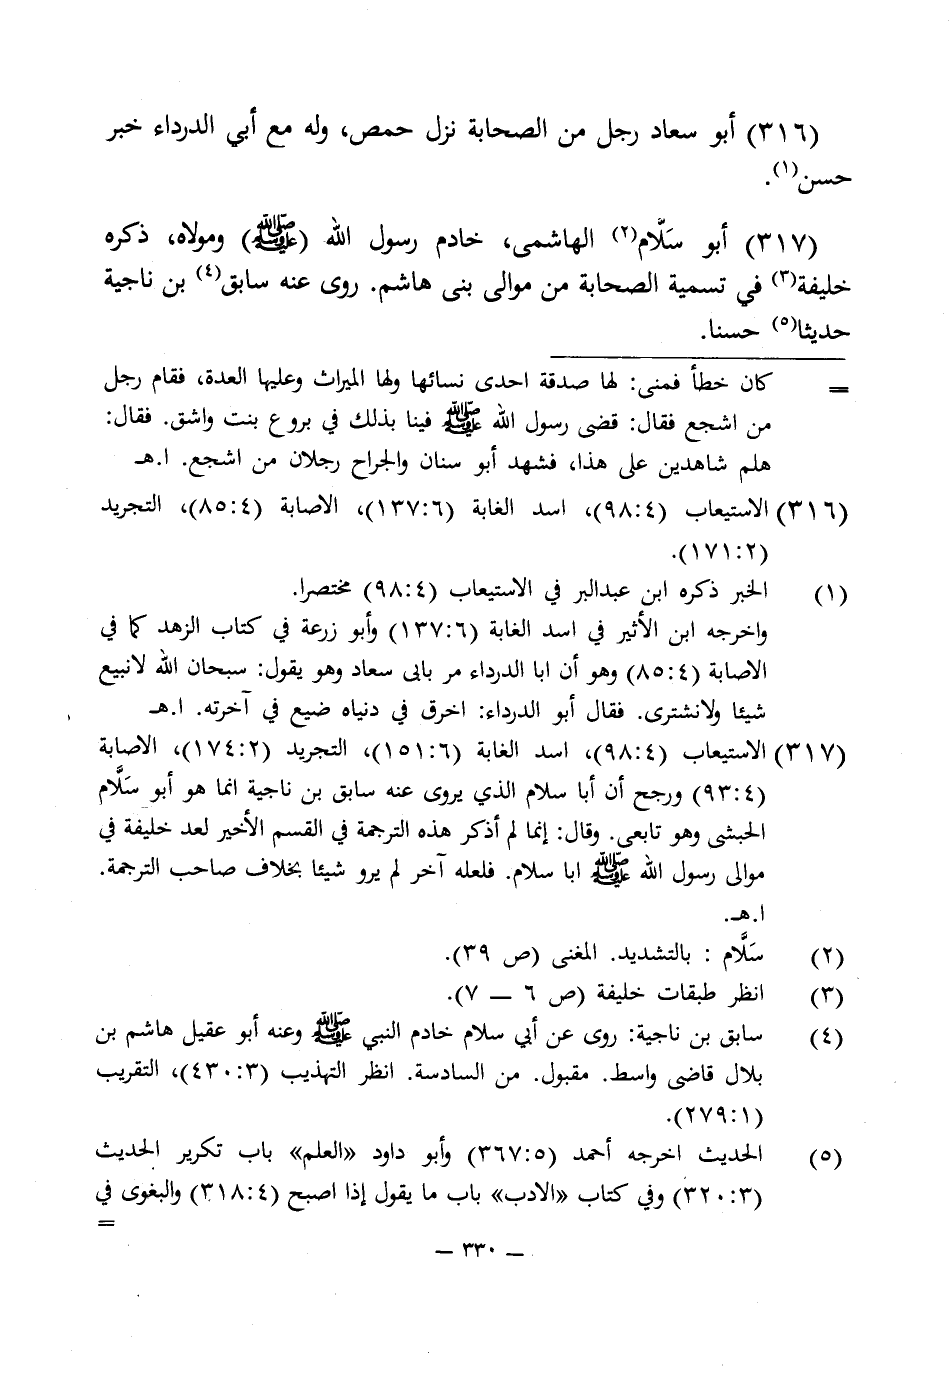 (٣١٦) أبو سعاد رجل من الصحابة نزل حمص، وله مع أبي الدرداء خبر
حسن(١).
(٣١٧) أبو سَلَّام(٢) الهاشمى، خادم رسول الله (ﷺ) ومولاه، ذكره
خليفة(٣) في تسمية الصحابة من موالى بنى هاشم. روى عنه سابق(٤) بن ناجية
حديثا(٥) حسنا.
= كان خطأ فمنى: لها صدقة احدى نسائها ولها الميراث وعليها العدة، فقام رجل
من اشجع فقال: قضى رسول الله ﷺ فينا بذلك في بروع بنت واشق. فقال:
هلم شاهدين على هذا، فشهد أبو سنان والجراح رجلان من اشجع. ا.هـ
(٣١٦) الاستيعاب (٩٨:٤)، اسد الغابة (١٣٧:٦)، الاصابة (٨٥:٤)، التجريد
(١٧١:٢).
(١) الخبر ذكره ابن عبدالبر في الاستيعاب (٩٨:٤) مختصرا.
واخرجه ابن الأثير في اسد الغابة (١٣٧:٦) وأبو زرعة في كتاب الزهد كما في
الاصابة (٨٥:٤) وهو أن ابا الدرداء مر بابى سعاد وهو يقول: سبحان الله لانبيع
شيئا ولانشترى. فقال أبو الدرداء: اخرق في دنياه ضيع في آخرته. ا.هـ
(٣١٧) الاستيعاب (٩٨:٤)، اسد الغابة (١٥١:٦)، التجريد (١٧٤:٢)، الاصابة
(٩٣:٤) ورجح أن أبا سلام الذي يروى عنه سابق بن ناجية انما هو أبو سَلَّام
الحبشى وهو تابعى. وقال: إنما لم أذكر هذه الترجمة في القسم الأخير لعد خليفة في
موالى رسول الله ﷺ ابا سلام. فلعله آخر لم يرو شيئا بخلاف صاحب الترجمة.
ا.هـ.
(٢) سَلَّام : بالتشديد. المغنى (ص ٣٩).
(٣) انظر طبقات خليفة (ص ٦ — ٧).
(٤) سابق بن ناجية: روى عن أبي سلام خادم النبي ﷺ وعنه أبو عقيل هاشم بن
بلال قاضى واسط. مقبول. من السادسة. انظر التهذيب (٤٣٠:٣)، التقريب
(٢٧٩:١).
(٥) الحديث اخرجه أحمد (٣٦٧:٥) وأبو داود «العلم» باب تكرير الحديث
(٣٢٠:٣) وفي كتاب «الادب» باب ما يقول إذا اصبح (٣١٨:٤) والبغوى في
=
— ٣٣٠ —